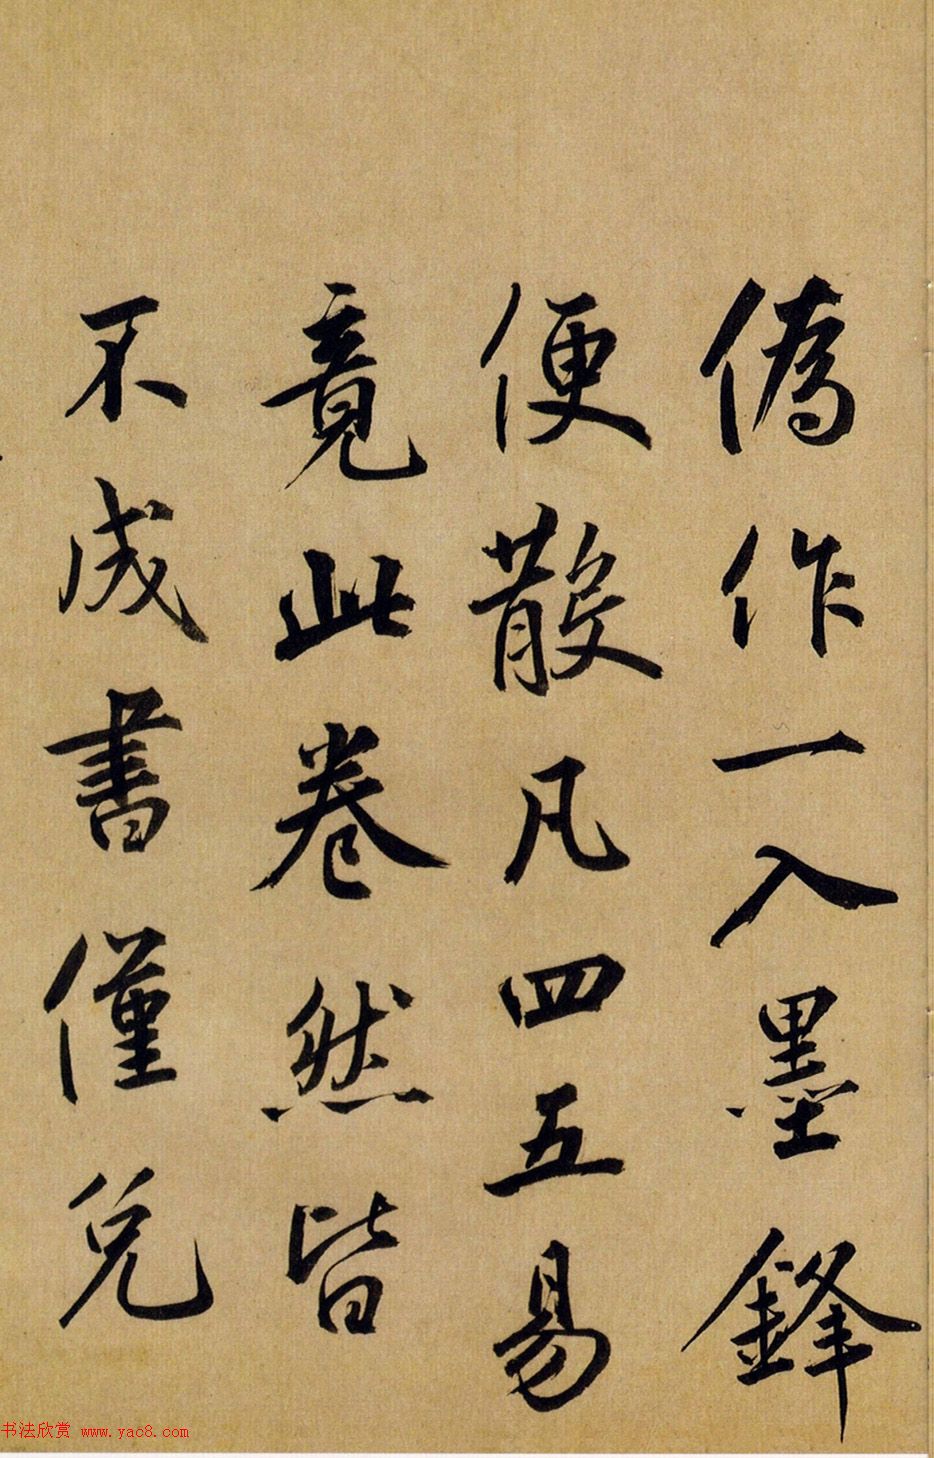 偽作一入墨鋒
便散凡四五易
竟此卷然皆
不成書僅免
书法欣赏 www.yac8.com